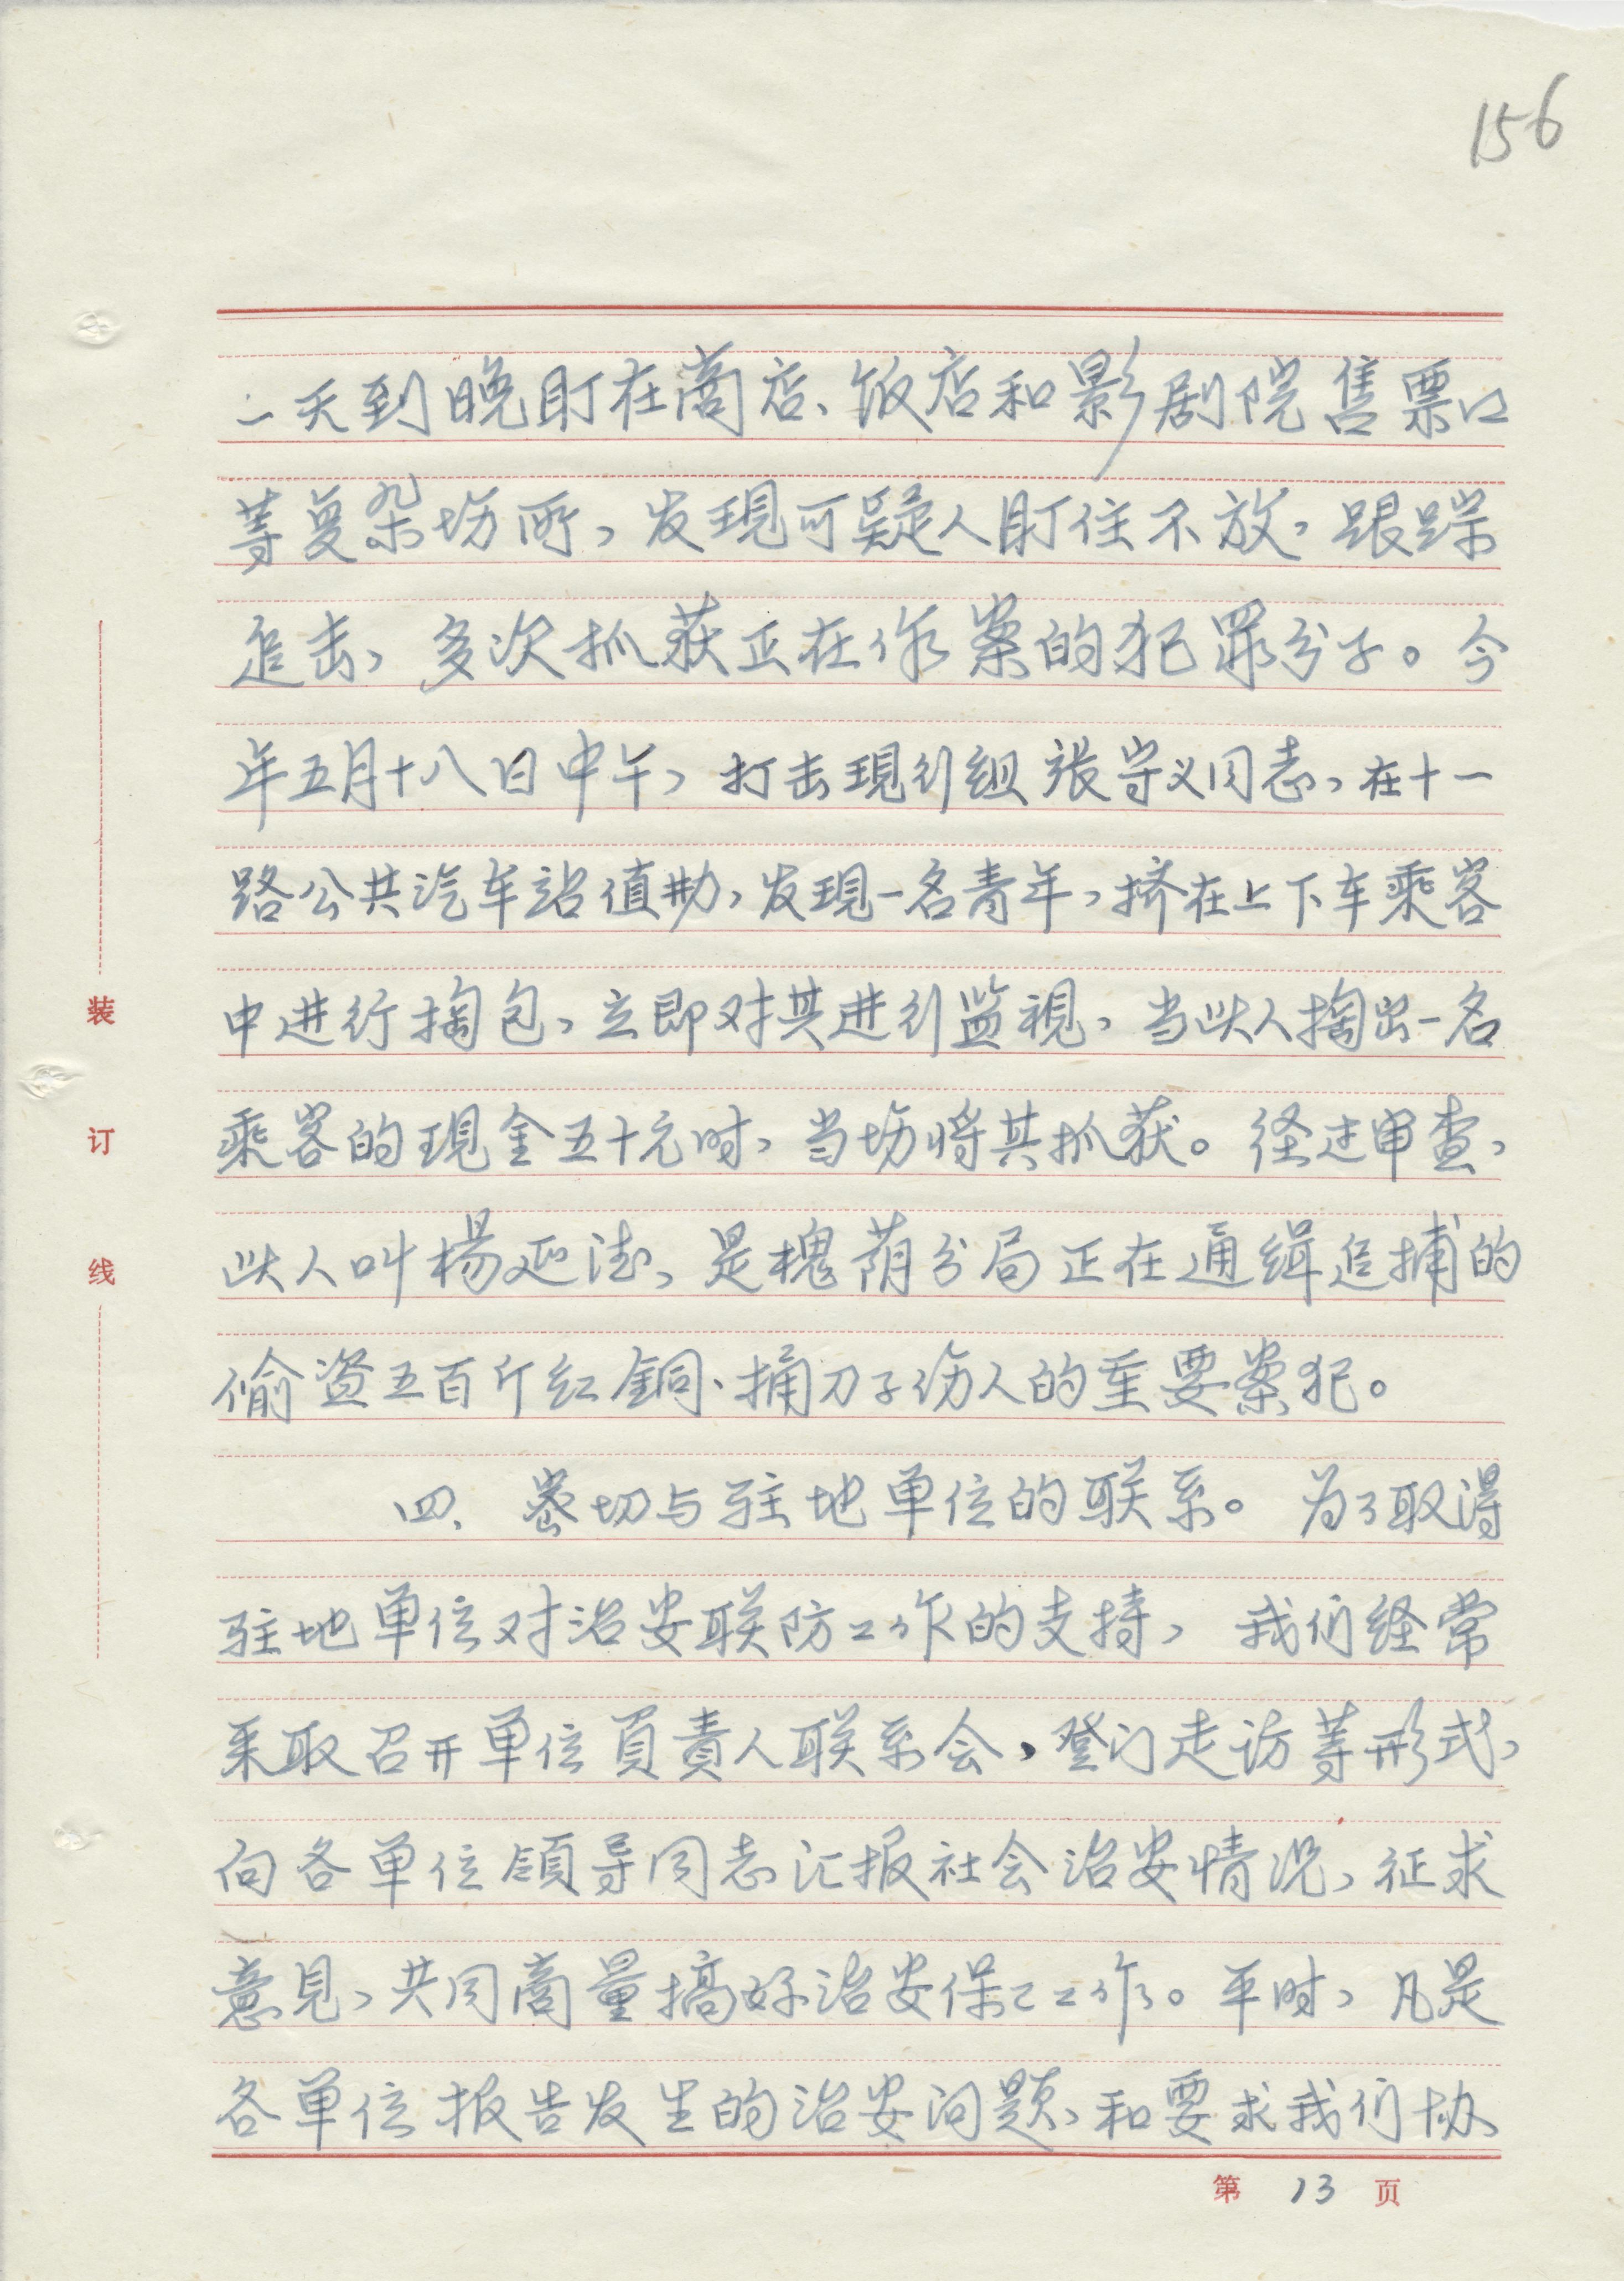 156
一天到晚盯在商店、饭店和影剧院售票口
等复杂场所，发现可疑人盯住不放，跟踪
追击，多次抓获正在作案的犯罪分子。今
年五月十八日中午，打击現行組張守义同志，在十一
路公共汽车站值勤，发現一名青年，挤在上下车乘客
中进行掏包，立即对其进行监視，当此人掏出一名
乘客的現金五十元时，当场将其抓获。经过审查，
此人叫楊延法，是槐荫分局正在通缉追捕的
偷盗五百斤红銅、捅刀子伤人的重要案犯。
四、密切与驻地单位的联系。为了取得
驻地单位对治安联防工作的支持，我们经常
采取召开单位負責人联系会，登门走访等形式，
向各单位領导同志汇报社会治安情况，征求
意見，共同商量搞好治安保卫工作。平时，凡是
各单位报告发生的治安问题，和要求我们协
装
订
线
第 13 页